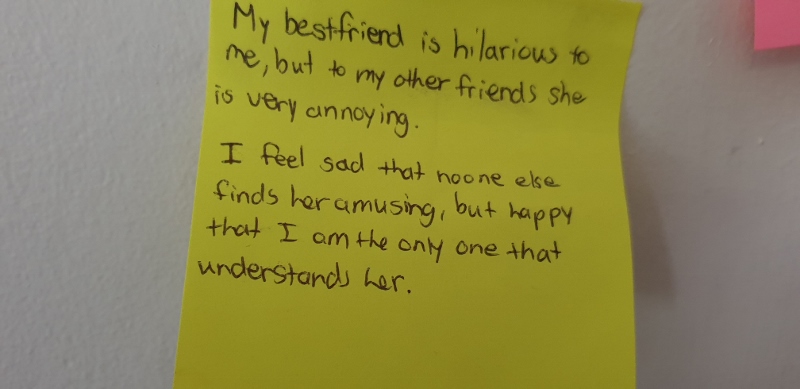 My bestfriend is hilarious to
me, but to my other friends she
is very annoying.
I feel sad that noone else
finds her amusing, but happy
that I am the only one that
understands her.